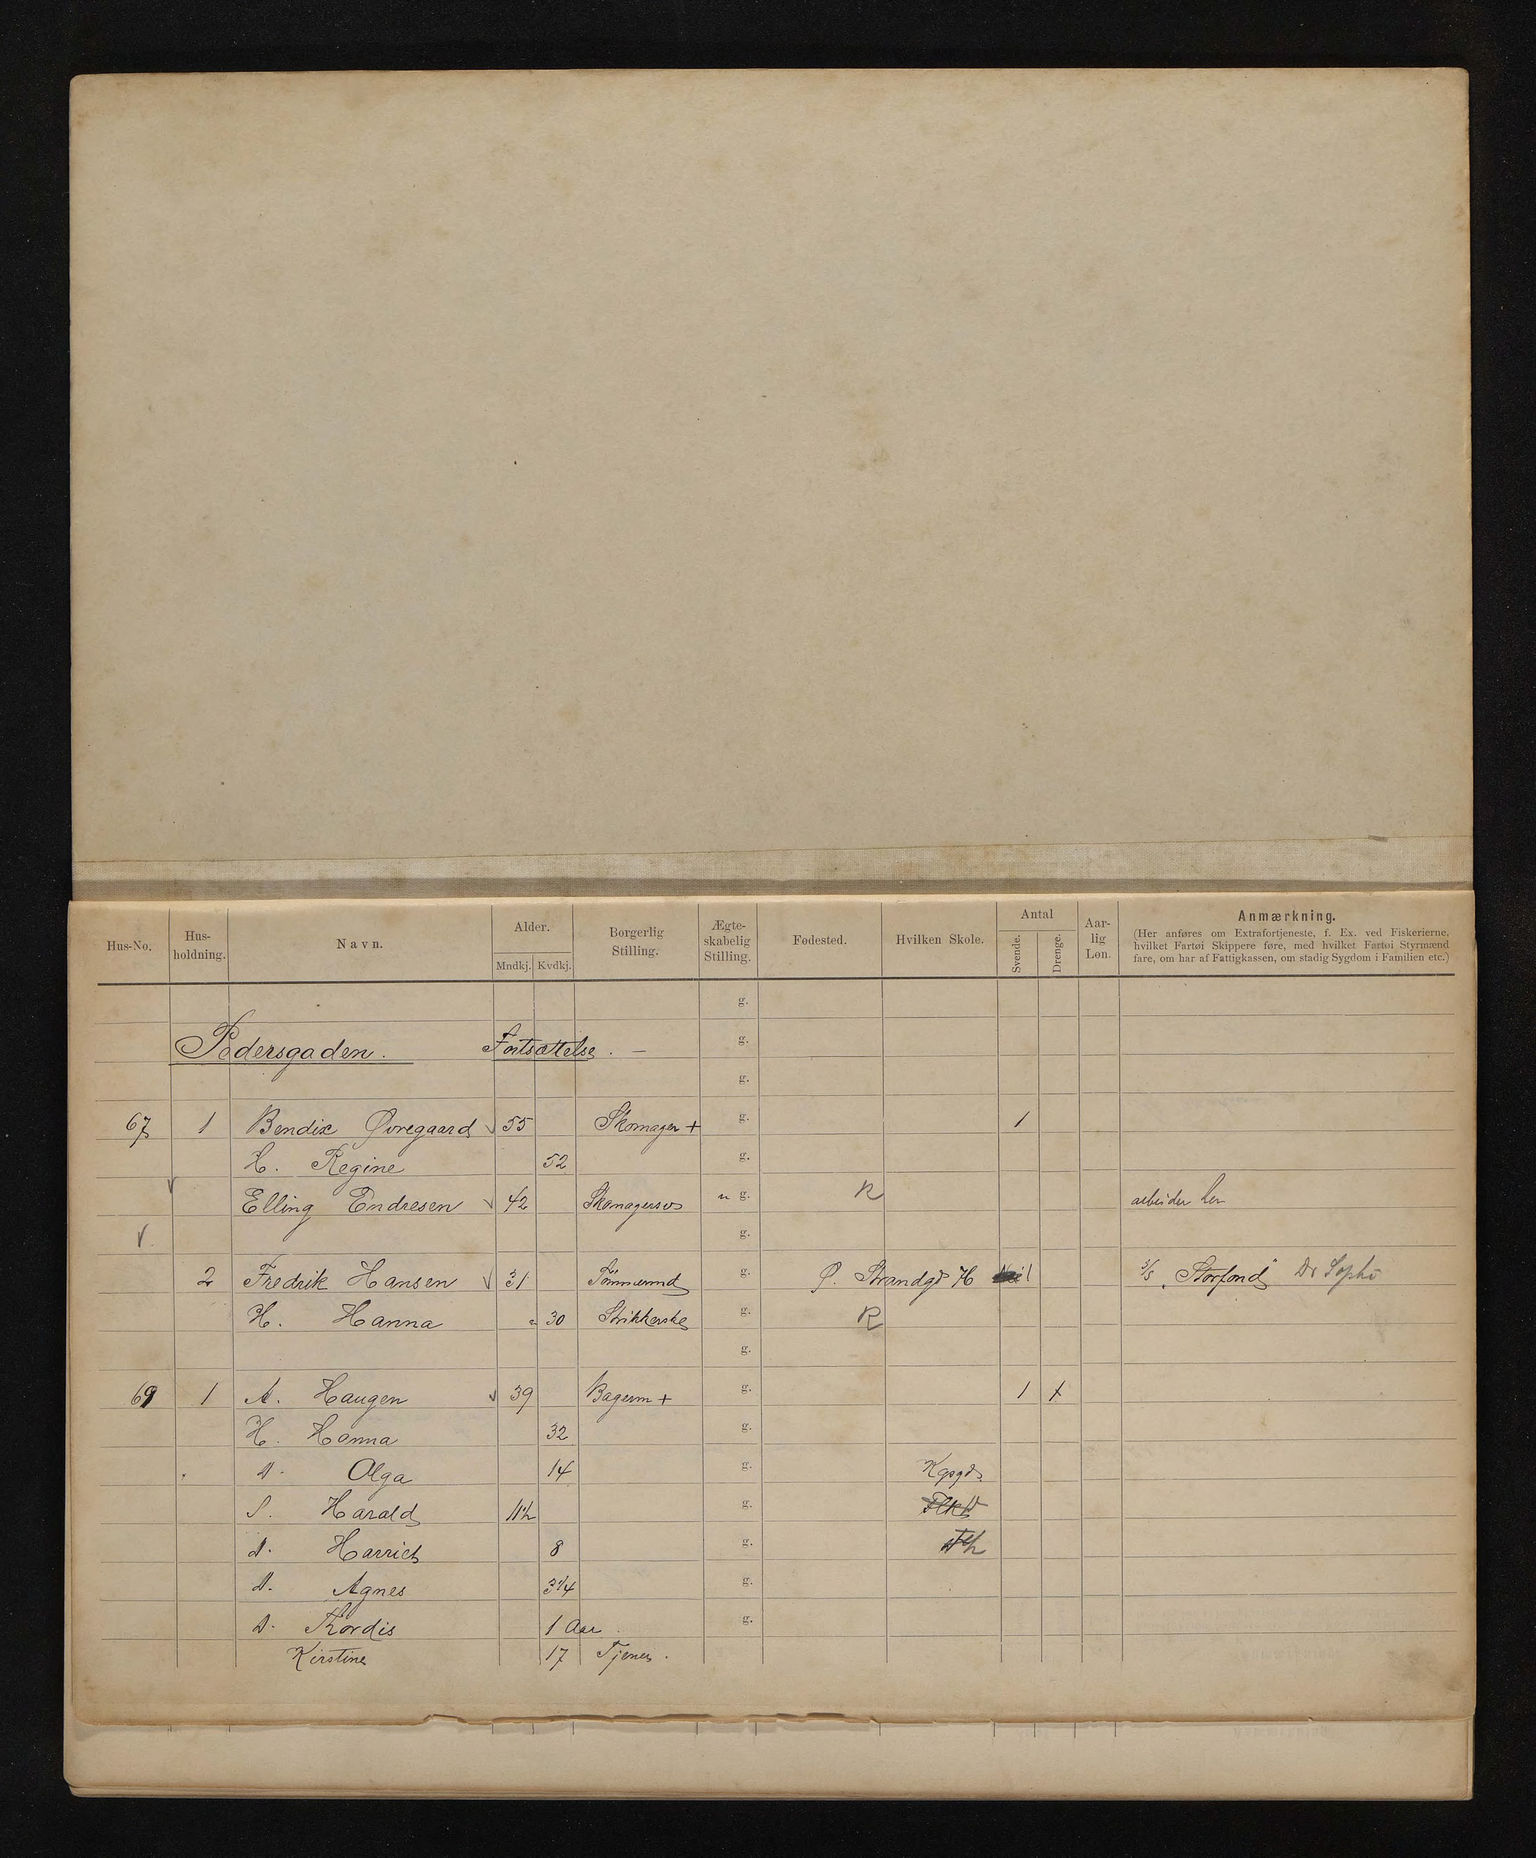 Hus-No. Hus-holdning. Navn. Alder. Mndkj. Kvdkj. Borgerlig Stilling. Ægte-skabelig Stilling. Fødested. Hvilken Skole. Antal Svende. Drenge. Aar-lig Løn. Anmærkning.
(Her anføres om Extrafortjeneste, f. Ex. ved Fiskerierne,
hvilket Fartøi Skippere føre, med hvilket Fartøi Styrmænd
fare, om har af Fattigkassen, om stadig Sygdom i Familien etc.)
g.
Pedersgaden. Fortsættelse. — g.
g.
67 1 Bendix Øvregaard √ 55 Skomager + g. 1
H. Regine 52 g.
√ Elling Endresen √ 42 Skomagersv u g. R arbeider her
√ g.
2 Fredrik Hansen √ 31 Tømmermd g. Ø. Strandgd H 1 "Storfond"
H. Hanna 30 Strikkerske g. R
g.
69 1 A. Haugen √ 39 Bagerm + g. 1 +
H. Hanna 32 g.
D. Olga 14 g. Kgsgd.
S. Harald 11½ g.
D. Harriet 8 g.
D. Agnes 3¼ g.
D. Thordis 1 Aar. g.
Kirstine 17 Tjenes.